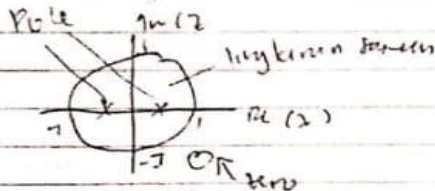 Pole
Im (z
lingkaran satuan
-1
1
Re (z)
-J
zero